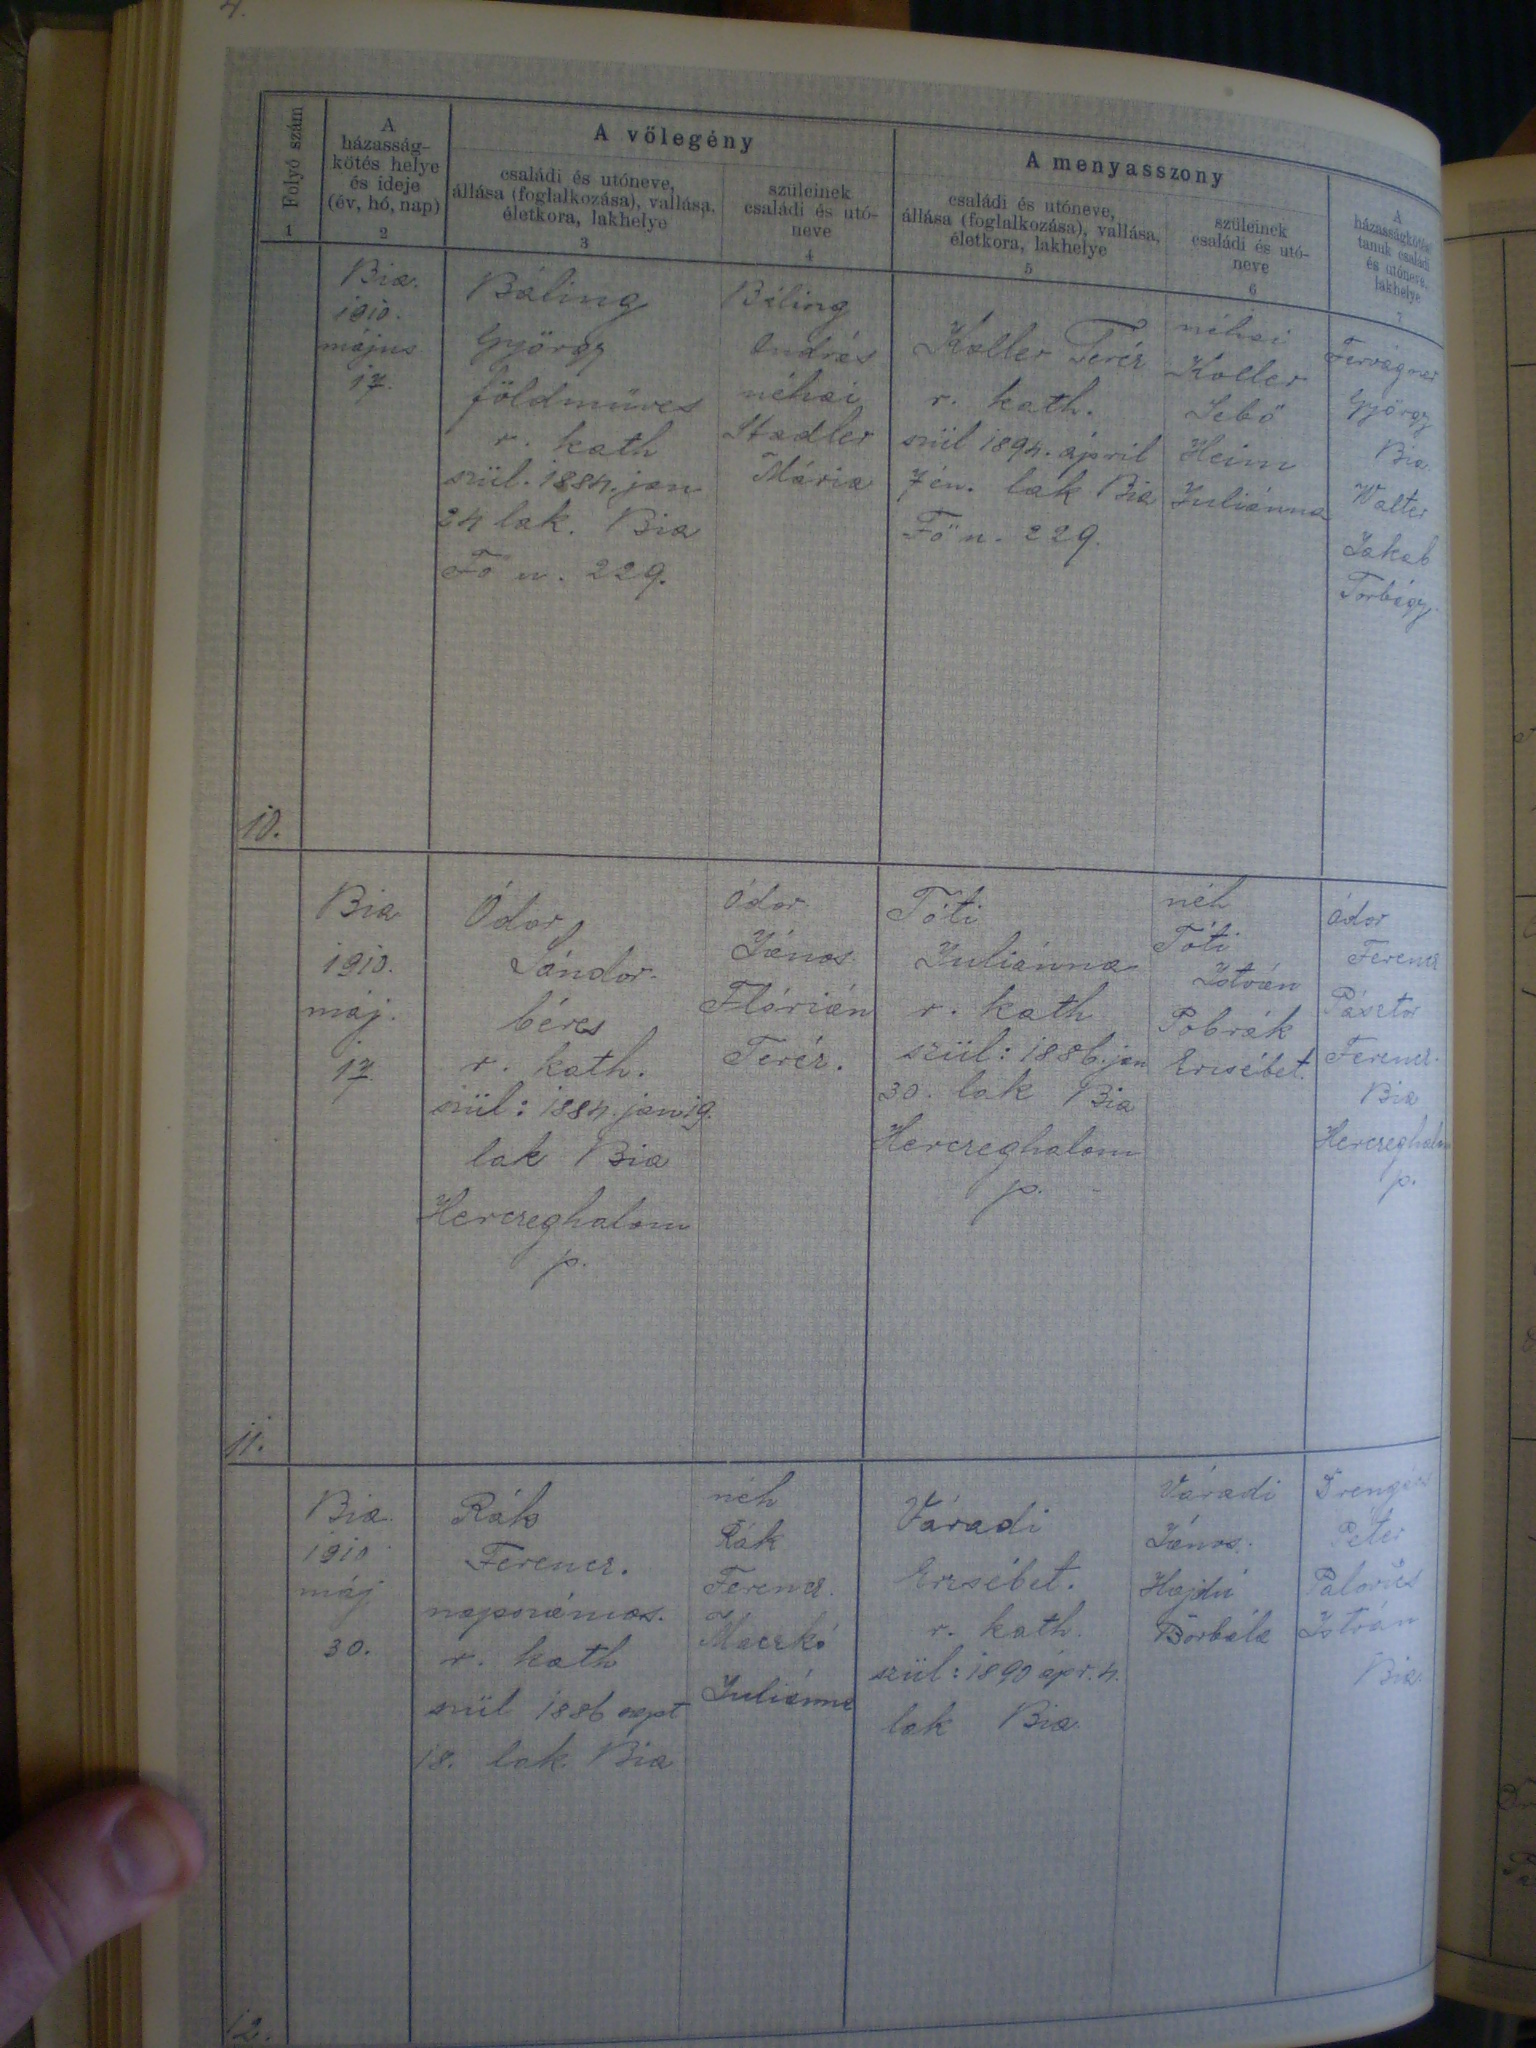 4.
Folyó szám
1
A
házasság-
kötés helye
és ideje
(év, hó, nap)
2
A vőlegény
családi és utóneve,
állása (foglalkozása), vallása,
életkora, lakhelye
3
szüleinek
családi és utó-
neve
4
A menyasszony
családi és utóneve,
állása (foglalkozása), vallása,
életkora, lakhelye
5
szüleinek
családi és utó-
neve
6
A
házasságkötési
tanuk családi
és utóneve,
lakhelye
7
10.
Bia.
1910.
május
17.
Báling
György
földmüves
r. kath
szül. 1884. jan
24 lak. Bia
Fő u. 229.
Báling
András
néhai
Stadler
Mária
Koller Teréz
r. kath.
szül 1894. ápril
7én. lak Bia
Fő u. 229.
néhai
Koller
Sebő
Heim
Juliánna
György
Bia.
Walter
Jakab
Torbágy
11.
Bia
1910.
máj.
17.
Ódor
Sándor.
béres
r. kath.
szül: 1884. jan 19.
lak Bia
Herczeghalom
p.
Ódor
János.
Flórián
Teréz.
Tóti
Juliánna
r. kath
szül: 1886. jan
30. lak Bia
Herczeghalom
p.
néh
Tóti
István
Pobrák
Erzsébet.
Ódor
Ferencz
Pásztor
Ferencz.
Bia
Herczeghalom
p.
12.
Bia.
1910
máj
30.
Rák
Ferencz.
napszámos.
r. kath
szül 1886 sept
18. lak. Bia
néh
Rák
Ferencz.
Maczkó
Juliánna
Váradi
Erzsébet.
r. kath.
szül: 1890 ápr. 4.
lak Bia.
Váradi
János.
Hajdú
Borbála
Péter
Palovics
István
Bia.